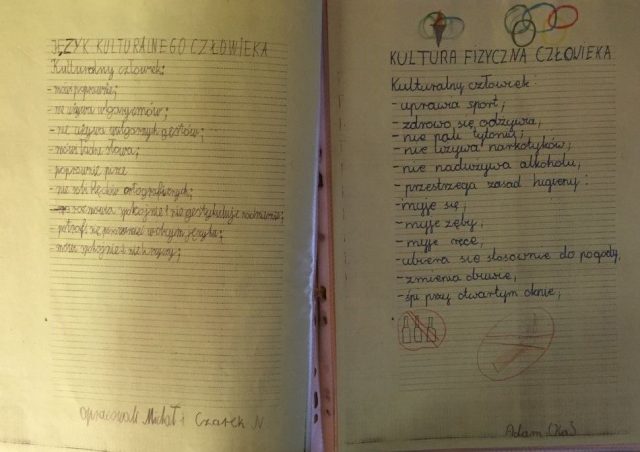 JĘZYK KULTURALNEGO CZŁOWIEKA
Kulturalny człowiek:
- mówi poprawnie;
- nie używa wulgaryzmów;
- nie używa wulgarnych gestów;
- mówi ładne słowa;
poprawnie pisze
- nie robi błędów ortograficznych;
- rozmawia spokojnie i nie gestykuluje nadmiernie;
- potrafi się porozumieć w obcym języku;
- mówi spokojnie i nie krzyczy;
opracowali Michał i Czarek N
KULTURA FIZYCZNA CZŁOWIEKA
Kulturalny człowiek:
- uprawia sport;
- zdrowo się odżywia,
- nie pali tytoniu;
- nie używa narkotyków,
- nie nadużywa alkoholu,
- przestrzega zasad higieny:
- myje się,
- myje zęby,
- myje ręce,
- ubiera się stosownie do pogody,
- zmienia obuwie,
- śpi przy otwartym oknie,
Adam